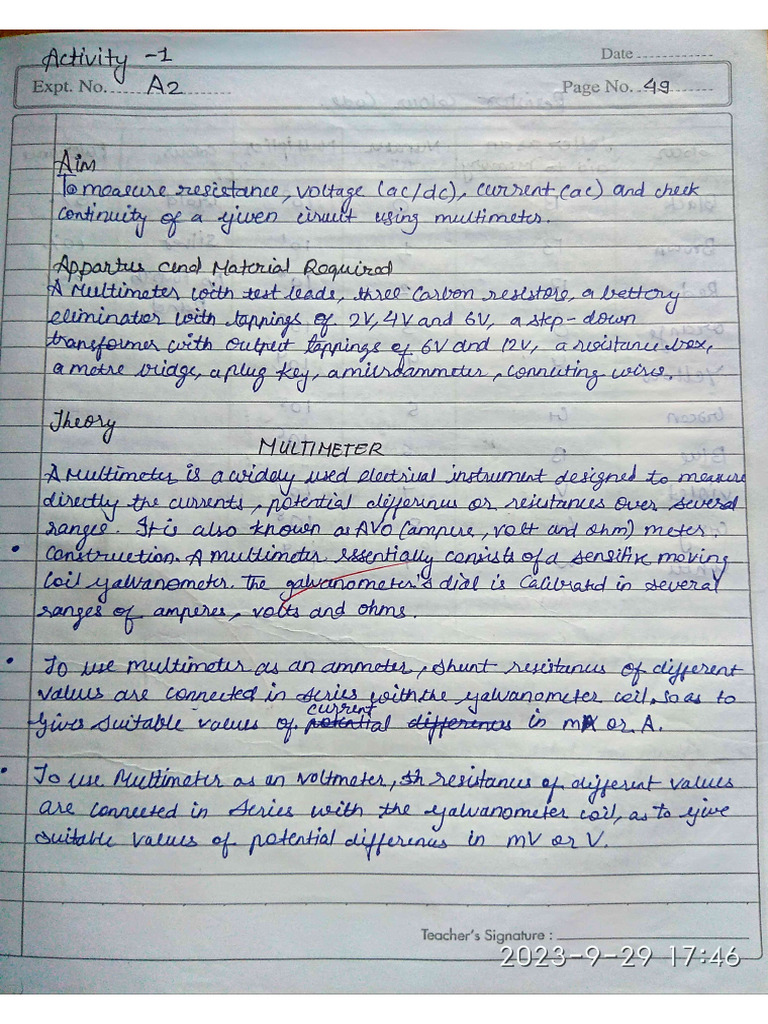 Activity -1
Date
Expt. No. A2
Page No. 49
Aim
To measure resistance, voltage (ac/dc), current (ac) and check
continuity of a given ciruit using multimeter.
Appartus and Material Required
A Multimeter with test leads, three carbon resistors, a bettery
eliminator with tappings of 2V, 4V and 6V, a step-down
transformer with output tappings of 6V and 12V, a resistance box,
a metre bridge, a plug key, a milliammeter, connecting wires.
Theory
MULTIMETER
A Multimeter is a widely used electrical instrument designed to measure
directly the currents, potential differences or resistances over several
ranges. It is also known as AVO (ampere, volt and ohm) meter.
• Construction. A multimeter essentially consists of a sensitive moving
coil galvanometer. The galvanometer's dial is calibrated in several
ranges of amperes, volts and ohms.
• To use multimeter as an ammeter, shunt resistances of different
values are connected in series with the galvanometer coil, so as to
give suitable values of current potential differences in mA or A.
• To use Multimeter as an voltmeter, resistances of different values
are connected in series with the galvanometer coil, as to give
suitable values of potential differences in mV or V.
Teacher's Signature :
2023-9-29 17:46